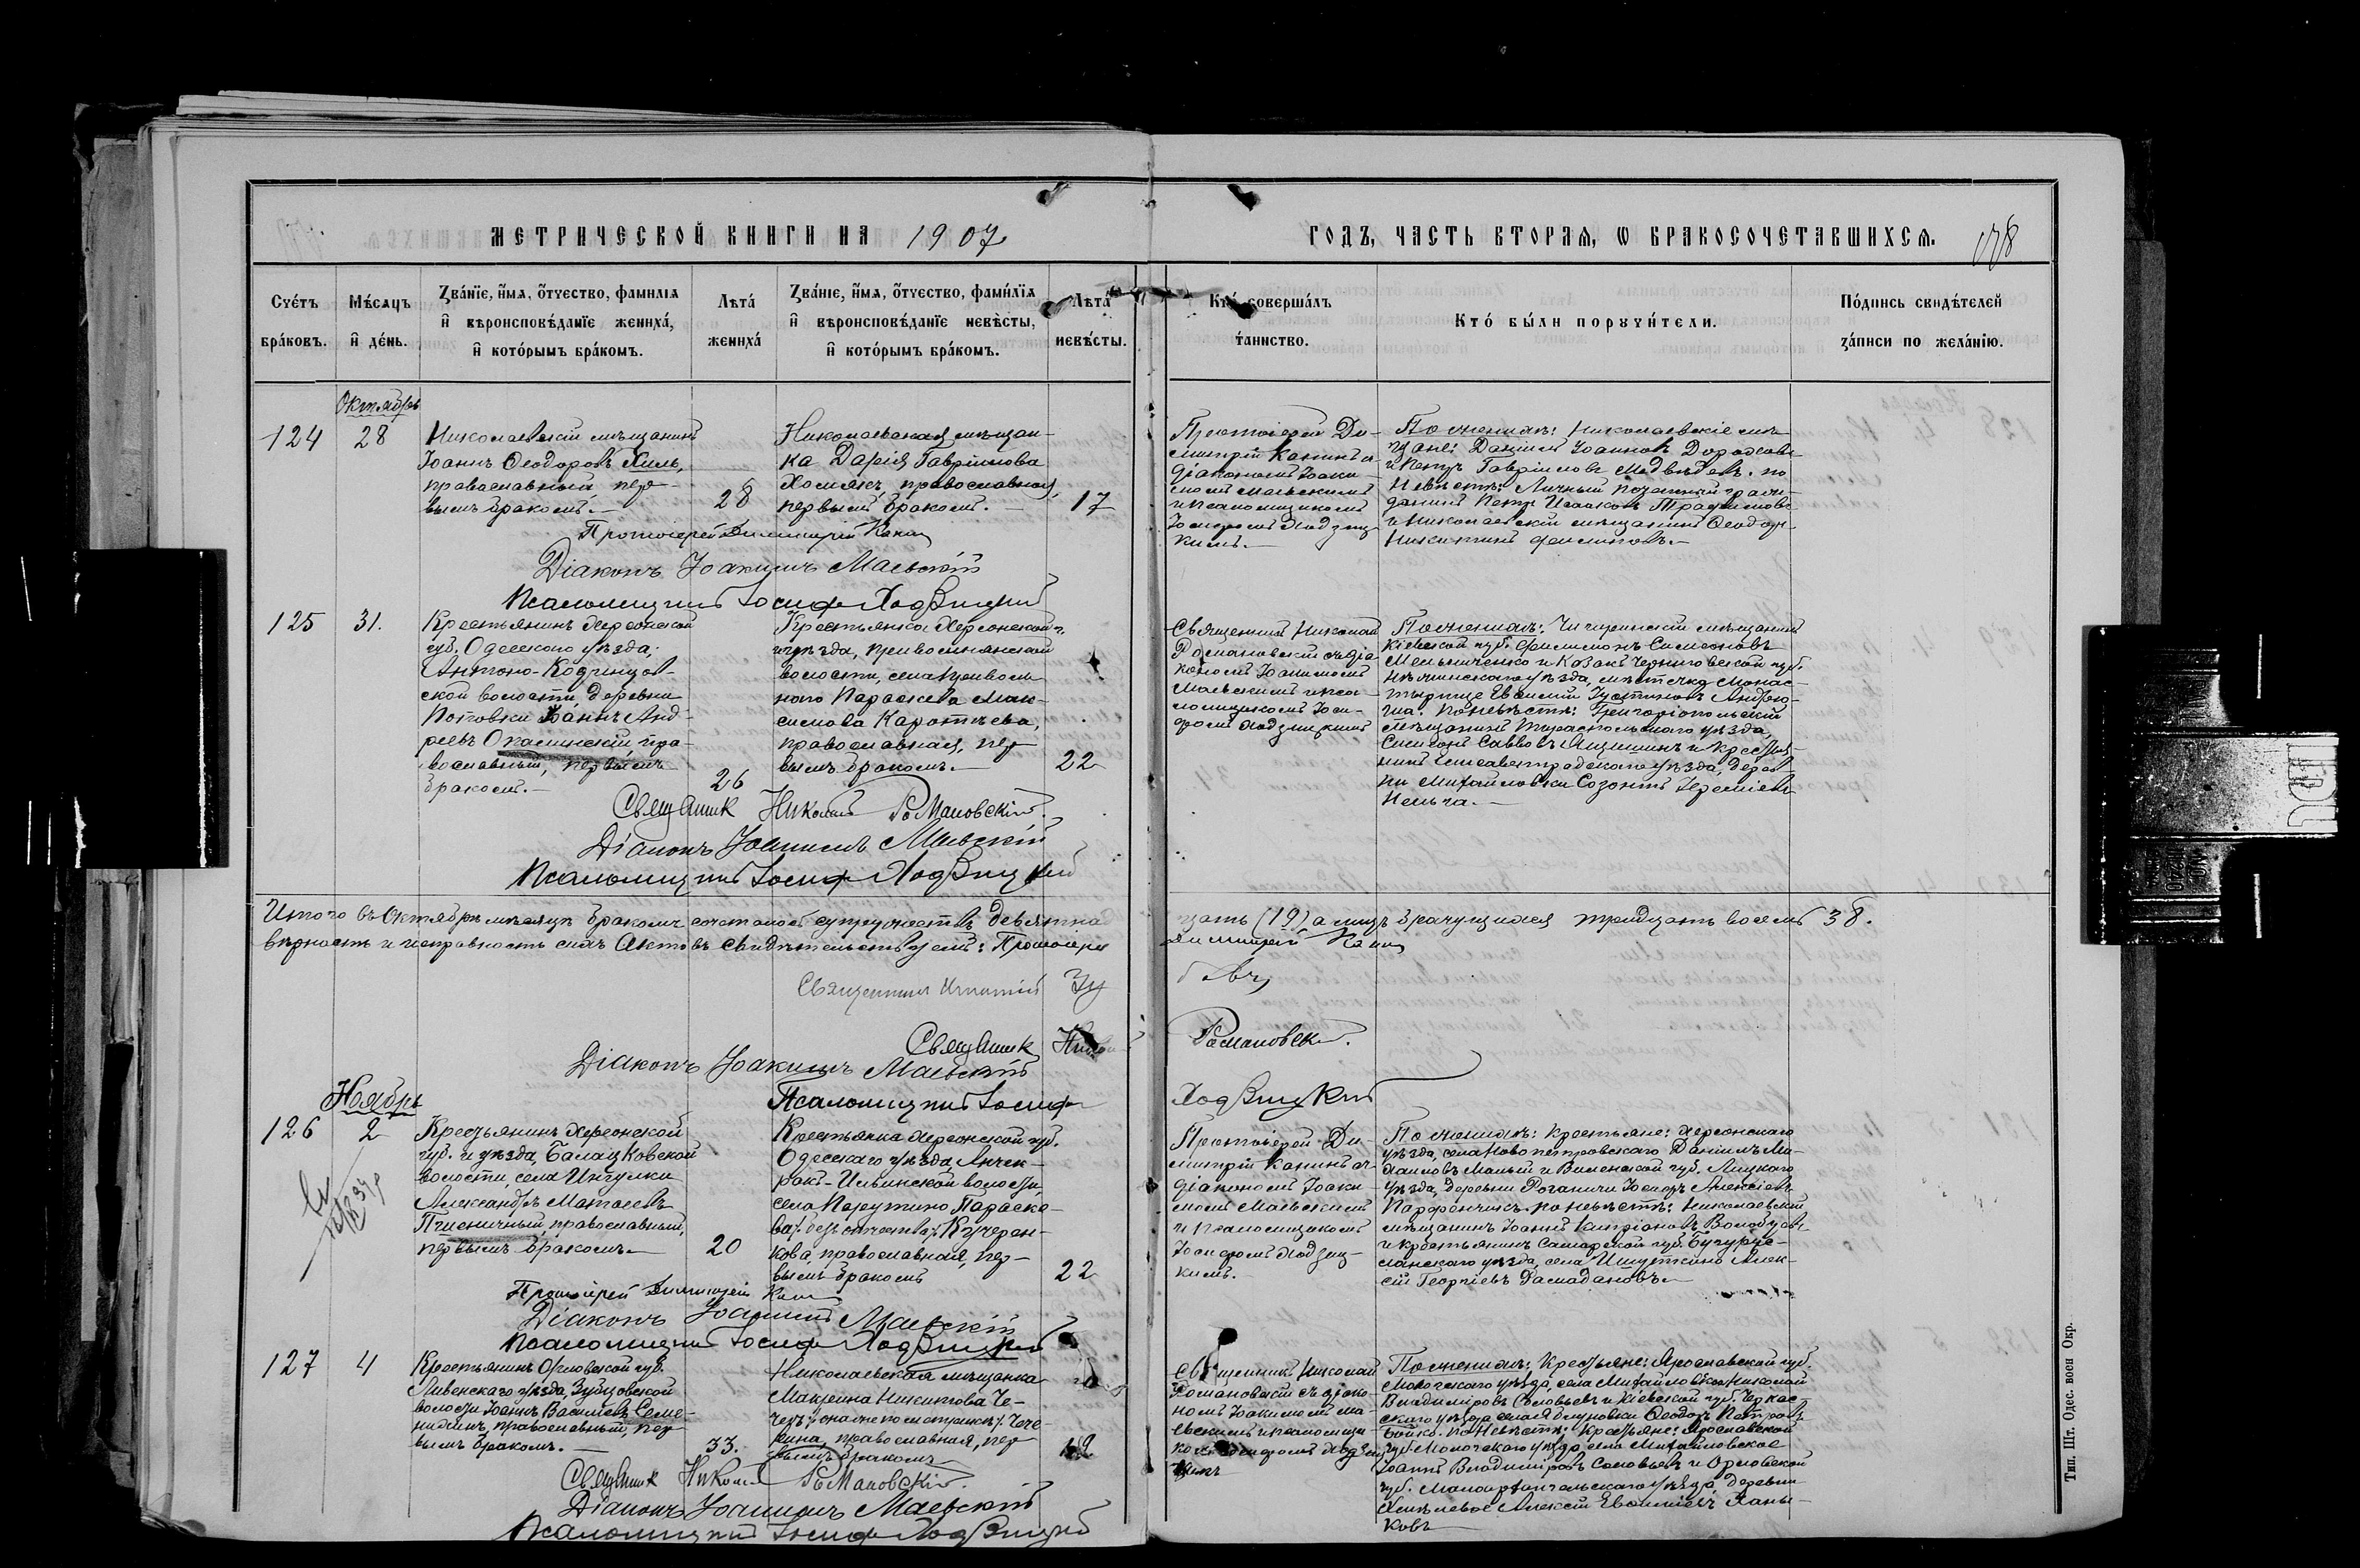 МЕТРИЧЕСКОЙ КНИГИ НА 1907
ГОДЪ, ЧАСТЬ ВТОРАЯ, Ѡ БРАКОСОЧЕТАВШИХСЯ.
178
Счетъ браковъ.
Мѣсяцъ и день.
Званіе, имя, отчество, фамилія
и вѣроисповѣданіе жениха,
и которымъ бракомъ.
Лѣта жениха
Званіе, имя, отчество, фамилія
и вѣроисповѣданіе невѣсты,
и которымъ бракомъ.
Лѣта невѣсты.
Кто совершалъ таинство.
Кто были поручители.
Подпись свидѣтелей
записи по желанію.
Октябрь
124
28
Николаевскій мѣщанинъ
Іоаннъ Ѳеодоровъ Хиль,
православный, пер-
вымъ бракомъ.
28
Николаевская мѣщан-
ка Дарія Гавріилова
Хомякъ, православная,
первымъ бракомъ.
17
Протоіерей Ди-
митрій Канинъ съ
діакономъ Іоаки-
момъ Маевскимъ
и псаломщикомъ
Іосифомъ Ходзиц-
кимъ.
По женихѣ: Николаевскіе мѣ-
щане: Даніилъ Іоанновъ
и Петръ Гавріиловъ Медвѣдевъ. по
Невѣстѣ: Личный почетный граж-
данинъ Петръ Исааковъ
и Николаевскій мѣщанинъ Ѳеодоръ
Никитинъ Филиповъ.
Протоіерей Димитрій Канин
Діаконъ Іоакимъ Маевскій
Псаломщикъ Іосифъ Ходзицкій
125
31.
Крестьянинъ Херсонской
губ. Одесскаго уѣзда,
Антоно-Кодинцов-
ской волости, деревни
Іоаннъ Анд-
реевъ Опалинскій, пра-
вославный, первымъ
бракомъ.
26
Крестьянка Херсонской г.
и уѣзда, Привольнянской
волости, села Приволь-
наго Параскева Мак-
симова Каротчева,
православная, пер-
вымъ бракомъ.
22
Священникъ Николай
Романовскій съ діа-
кономъ Іоакимомъ
Маевскимъ и пса-
ломщикомъ Іоси-
фомъ Ходзицкимъ
По женихѣ: Чигиринскій мѣщанинъ
Кіевской губ. Филимонъ Симеоновъ
Мельниченко и Козакъ Черниговской губ.
Нѣжинскаго уѣзда, мѣстечка Монас-
тырище Евфимій Іустиновъ
По невѣстѣ: Григоріопольскій
мѣщанинъ Тираспольскаго уѣзда,
Саввовъ и крестья-
нинъ Елисаветградскаго уѣзда, дерев-
ни Михайловки Созонтъ
Священник Николай Романовскій.
Діаконъ Іоакимъ Маевскій
Псаломщикъ Іосифъ Ходзицкій
Итого въ Октябрѣ мѣсяцѣ бракомъ сочеталось супружествъ девятна
цать (19) а лицъ брачущихся тридцать восемь 38.
вѣрность и исправность сихъ актовъ свидѣтельствуемъ: Протоіерей
Димитрій Канин
Священникъ Игнатій
Священник Никола
Романовскі.
Діаконъ Іоакимъ Маевскій
Псаломщикъ Іосифъ
Ходзицкій
Ноябрь
126
2
Крестьянинъ Херсонской
губ. и уѣзда, Балацковской
волости, села Ингулки
Александръ Матѳеевъ
Пшеничный, православный,
первымъ бракомъ.
20
Крестьянка Херсонской губ.
Одесскаго уѣзда, Анчек-
ракъ-Ильинской волости,
села Парутино Параске-
ва /безъ отчества/ Кучерен-
кова, православная, пер-
вымъ бракомъ
22
Протоіерей Ди-
митрій Канинъ съ
діакономъ Іоаки-
момъ Маевскимъ
и псаломщикомъ
Іосифомъ Ходзиц-
кимъ.
По женихѣ: Крестьяне: Херсонскаго
уѣзда, села Новопетровскаго Даніилъ Ми-
хаиловъ Малый и Виленской губ. Лидскаго
уѣзда, деревни Іосифъ Алексіевъ
Парфенчикъ. по невѣстѣ: Николаевскій
мѣщанинъ Іоаннъ Кипріановъ
и крестьянинъ Самарской губ. Бугурус-
ланскаго уѣзда, села Ишуткино Алек-
сій Георгіевъ Рамадановъ.
Протоіерей Димитрій Канин
Діаконъ Іоакимъ Маевскій
Псаломщикъ Іосифъ Ходзицкій
127
4
Крестьянинъ Орловской губ.
Ливенскаго уѣзда, Зубцовской
волости Іоаннъ Василіевъ Семе-
нидинъ, православный, пер-
вымъ бракомъ.
33.
Николаевская мѣщанка
Макрина Никитова Че-
черъ /она же по метрикѣ/ Чече-
рина, православная, пер
вымъ бракомъ
Священникъ Николай
Романовскій съ діако-
номъ Іоакимомъ Ма-
евскимъ и псаломщи-
комъ Іосифомъ Ходзиц
По женихѣ: Крестьяне: Ярославской губ.
Мологскаго уѣзда, села Михайловское Николай
Владиміровъ Соловьевъ и Кіевской губ. Черкас-
скаго уѣзда, села Яблуновки Ѳеодоръ Петровъ
Бойко. По Невѣстѣ: Крестьяне: Ярославской
губ. Мологскаго уѣзда, села Михайловское
Іоаннъ Владиміровъ Соловьевъ и Орловской
губ. Малоархангельскаго уѣзда, деревни
Хмѣлевое Алексій Евфиміевъ Ханы-
ковъ
Священник Николай Романовскій.
Діаконъ Іоакимъ Маевскій
Псаломщикъ Іосифъ Ходзицкій
Тип. Шт. Одес. воен Окр.